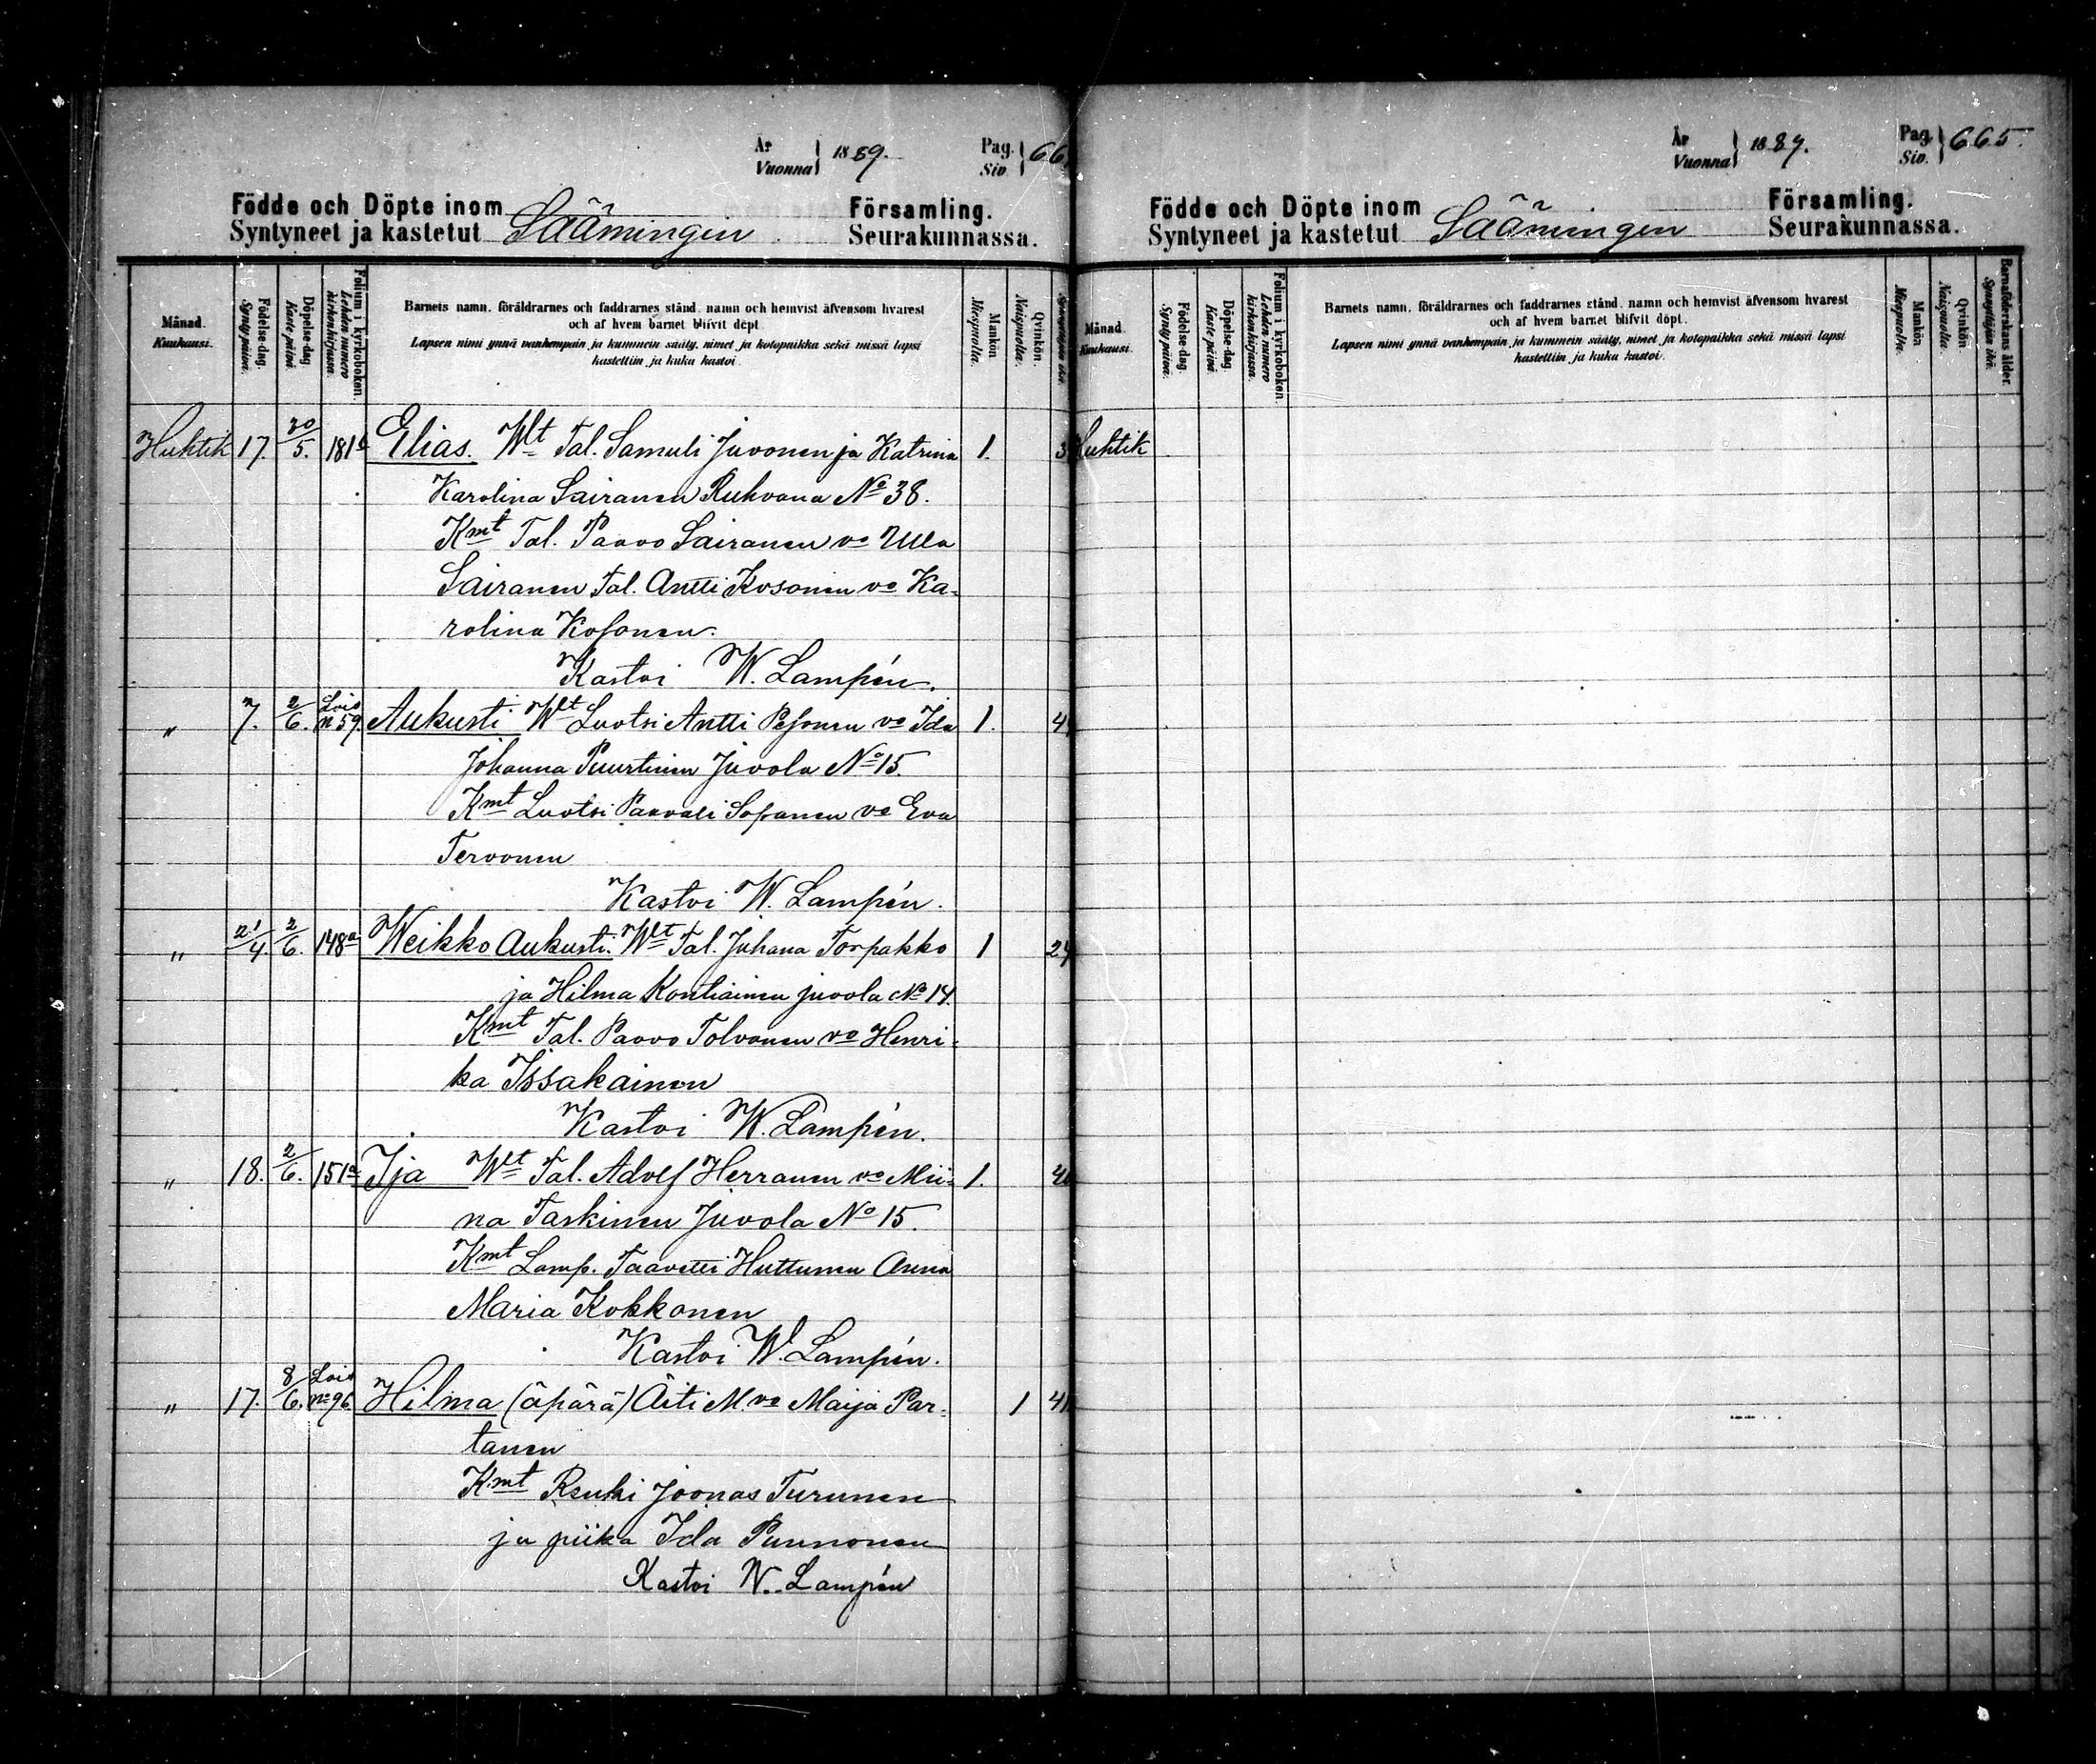 År
Vuonna 1889.
Pag.
Siv. 66
Födde och Döpte inom
Syntyneet ja kastetut Säämingin
Församling.
Seurakunnassa.
Månad.
Kuukausi.
Födelse-dag.
Synty päivä.
Döpelse-dag.
Kaste päivä.
Folium i kyrkoboken.
Lehden numero kirkonkirjassa.
Barnets namn, föräldrarnes och faddrarnes stånd, namn och hemvist äfvensom hvarest
och af hvem barnet blifvit döpt.
Lapsen nimi ynnä vanhempain ja kummein sääty, nimet ja kotopaikka sekä missä lapsi
kastettiin ja kuka kastoi.
Mankön.
Miespuolta.
Qvinkön.
Naispuolta.
Huhtik 17. 20/5. 181 Elias. Wlt Tal. Samuli Juvonen ja Katrina 1. 3
Karolina Sairanen Ruhvana No 38.
Kmt Tal. Paavo Sairanen vo Ulla
Sairanen Tal. Antti Kosonen vo Ka-
rolina Kosonen.
Kastoi W. Lampén.
" 7. 2/6. Lois n 59. Aukusti Wlt Luotsi Antti Pesonen vo Ida 1. 4
Johanna Puurtinen Juvola No 15.
Kmt Luotsi Paavali Sopanen vo Eva
Tervonen
Kastoi W. Lampén.
" 21/4. 2/6. 148a Weikko Aukusti. Wlt Tal. Juhana Torpakko 1 24
ja Hilma Kontiainen juvola No 14.
Kmt Tal. Paavo Tolvanen vo Henri-
ka Issakainen
Kastoi W. Lampén.
" 18. 2/6. 151a Ija Wlt Tal. Adolf Herranen vo Mii- 1. 4
na Taskinen Juvola No 15.
Kmt Lamp. Taavetti Huttunen Anna
Maria Kokkonen
Kastoi W. Lampén.
" 17. 8/6. Lois no 96 Hilma (äpärä) Äiti M. vo Maija Par- 1 41
tanen
Kmt Renki Joonas Turunen
ja piika Ida Punnonen
Kastoi W. Lampén
År
Vuonna 1889.
Pag.
Siv. 665.
Födde och Döpte inom
Syntyneet ja kastetut Säämingin
Församling.
Seurakunnassa.
Månad.
Kuukausi.
Födelse-dag.
Synty päivä.
Döpelse-dag.
Kaste päivä.
Folium i kyrkoboken.
Lehden numero kirkonkirjassa.
Barnets namn, föräldrarnes och faddrarnes stånd, namn och hemvist äfvensom hvarest
och af hvem barnet blifvit döpt.
Lapsen nimi ynnä vanhempain ja kummein sääty, nimet ja kotopaikka sekä missä lapsi
kastettiin ja kuka kastoi.
Mankön.
Miespuolta.
Qvinkön.
Naispuolta.
Barnaföderskans ålder.
Synnyttäjän ikä.
Huhtik